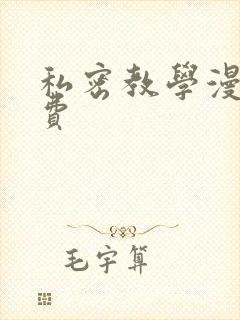 私密教學漫
費
毛宇算